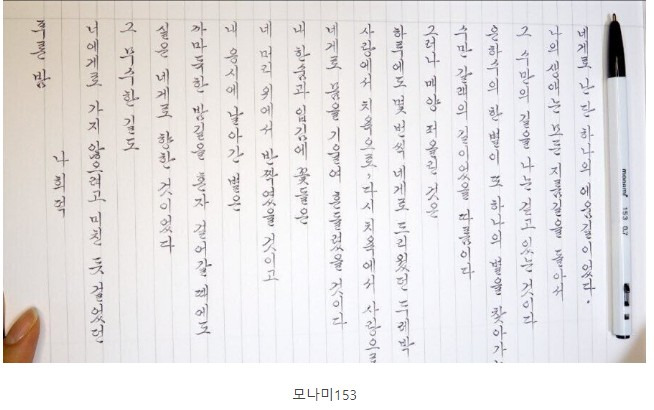 푸른 밤
나희덕
너에게로 가지 않으려고 미친 듯 걸었던
그 무수한 길도
실은 네게로 향한 것이었다
까마득한 밤길을 혼자 걸어갈 때에도
내 응시에 날아간 별은
네 머리 위에서 반짝였을 것이고
내 한숨과 입김에 꽃들은
네게로 몸을 기울여 흔들렸을 것이다
사랑에서 치욕으로, 다시 치욕에서 사랑으로
하루에도 몇 번씩 네게로 드리웠던 두레박
그러나 매양 퍼올린 것은
수만 갈래의 길이었을 따름이다
은하수의 한 별이 또 하나의 별을 찾아가는
그 수만의 길을 나는 걷고 있는 것이다
나의 생애는 모든 지름길을 돌아서
네게로 난 단 하나의 에움길이었다.
monami 153 0.7
모나미153